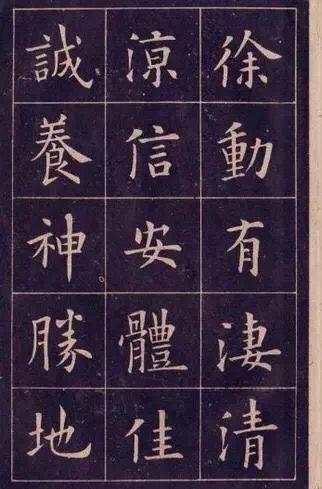 徐動有淒清
涼信安體佳
誠養神勝地